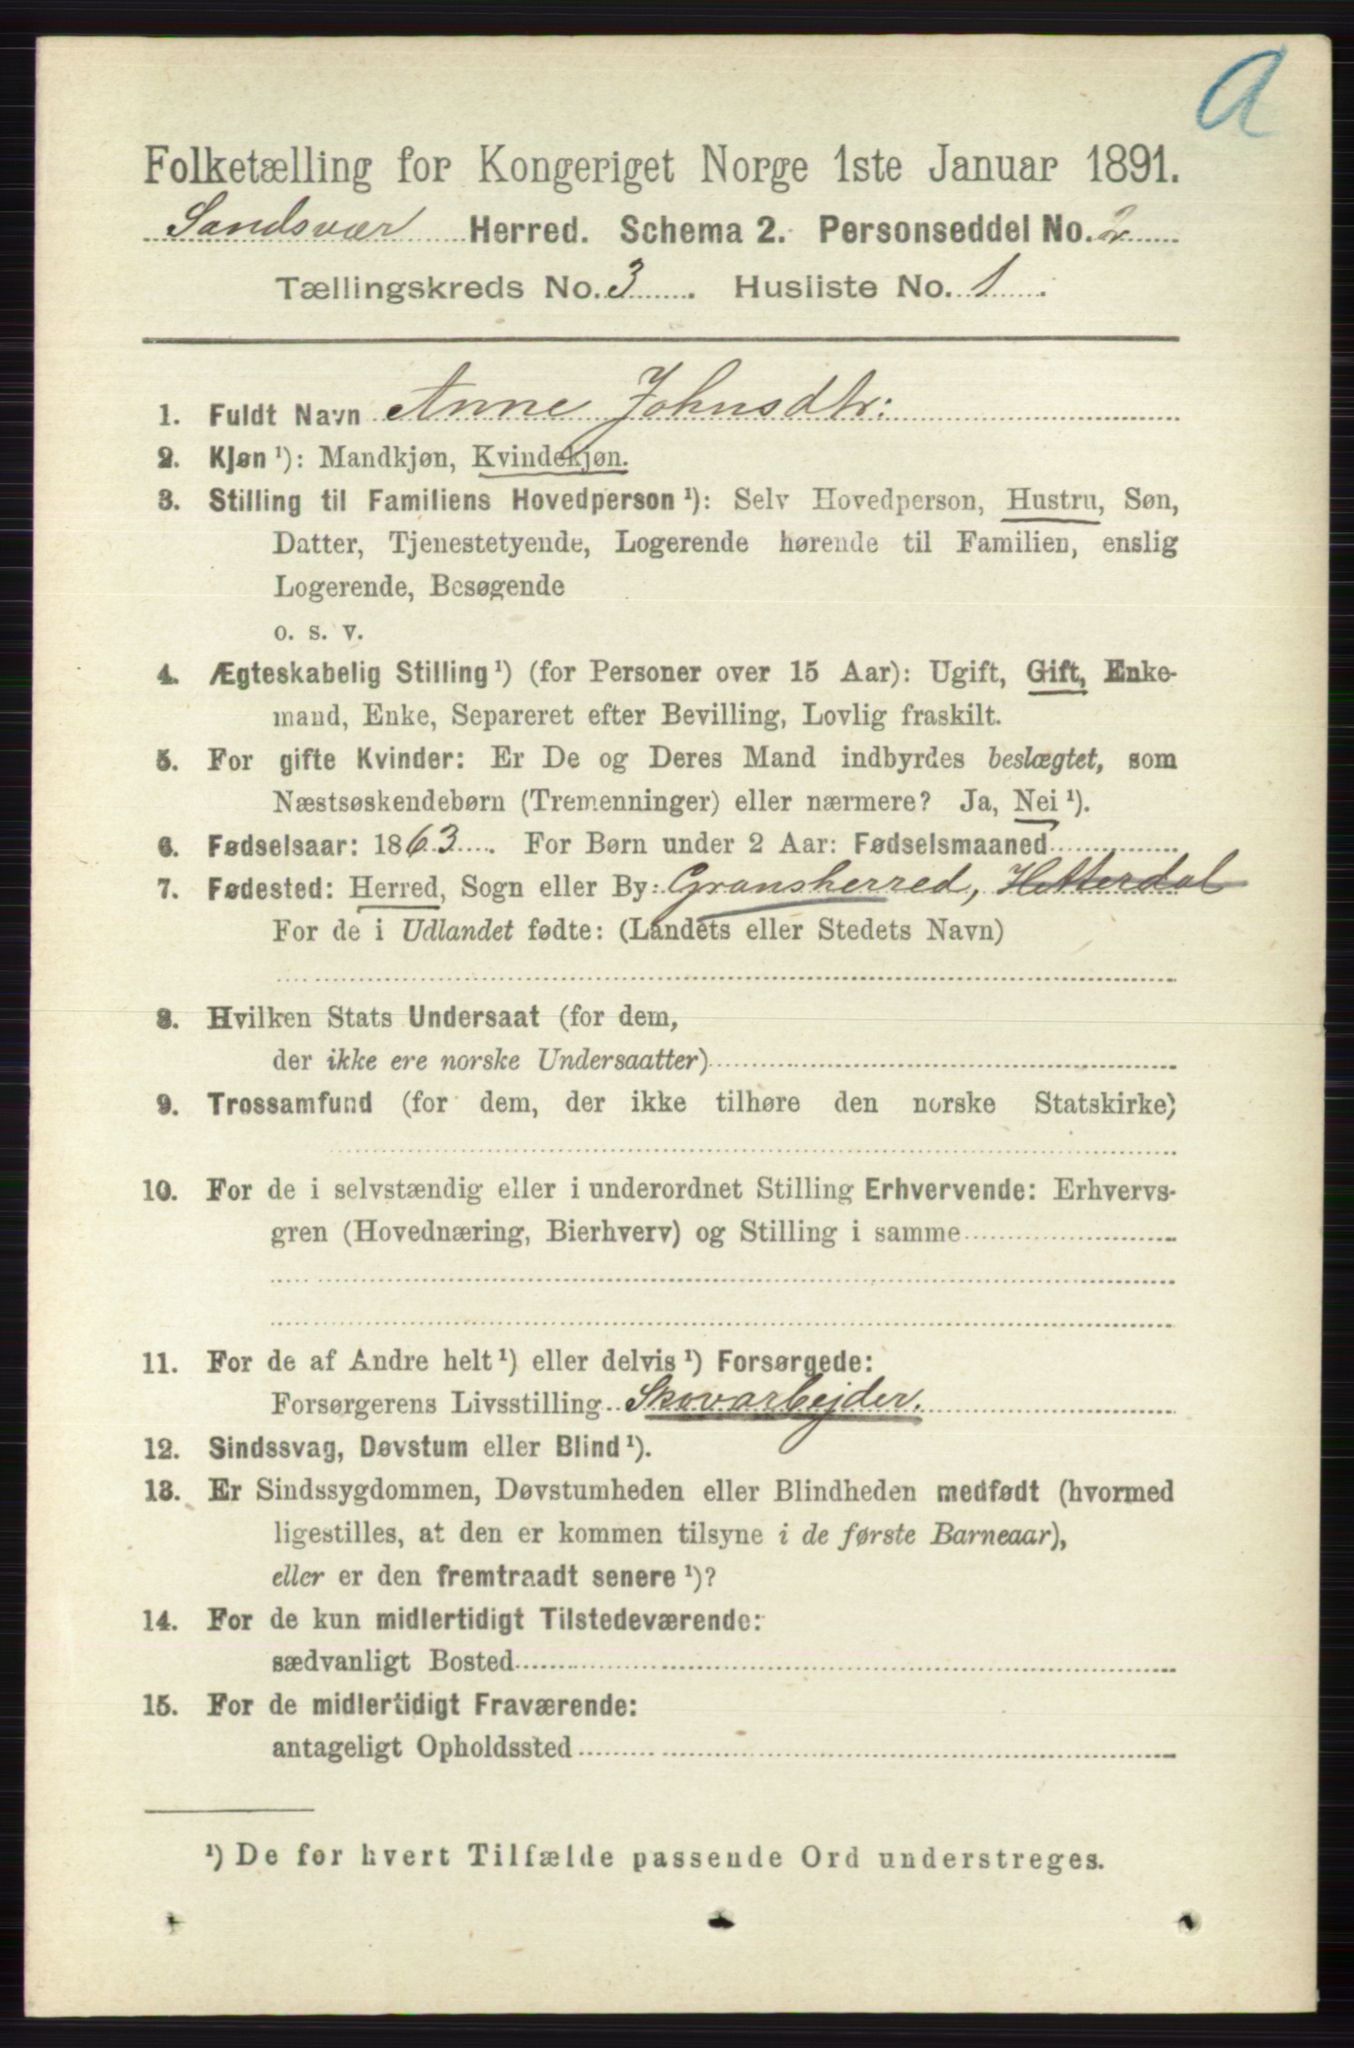 a
Folketælling for Kongeriget Norge 1ste Januar 1891.
Sandsvær Herred. Schema 2. Personseddel No. 2
Tællingskreds No. 3. Husliste No. 1.
1. Fuldt Navn Anne Johnsdtr:
2. Kjøn ¹): Mandkjøn, Kvindekjøn.
3. Stilling til Familiens Hovedperson ¹): Selv Hovedperson, Hustru, Søn,
Datter, Tjenestetyende, Logerende hørende til Familien, enslig
Logerende, Besøgende
o. s. v.
4. Ægteskabelig Stilling ¹) (for Personer over 15 Aar): Ugift, Gift, Enke-
mand, Enke, Separeret efter Bevilling, Lovlig fraskilt.
5. For gifte Kvinder: Er De og Deres Mand indbyrdes beslægtet, som
Næstsøskendebørn (Tremenninger) eller nærmere? Ja, Nei ¹).
6. Fødselsaar: 1863. For Børn under 2 Aar: Fødselsmaaned
7. Fødested: Herred, Sogn eller By: Gransherred, Hitterdal
For de i Udlandet fødte: (Landets eller Stedets Navn)
8. Hvilken Stats Undersaat (for dem,
der ikke ere norske Undersaatter)
9. Trossamfund (for dem, der ikke tilhøre den norske Statskirke)
10. For de i selvstændig eller i underordnet Stilling Erhvervende: Erhvervs-
gren (Hovednæring, Bierhverv) og Stilling i samme
11. For de af Andre helt ¹) eller delvis ¹) Forsørgede:
Forsørgerens Livsstilling Skovarbejder.
12. Sindssvag, Døvstum eller Blind ¹).
13. Er Sindssygdommen, Døvstumheden eller Blindheden medfødt (hvormed
ligestilles, at den er kommen tilsyne i de første Barneaar),
eller er den fremtraadt senere ¹)?
14. For de kun midlertidigt Tilstedeværende:
sædvanligt Bosted
15. For de midlertidigt Fraværende:
antageligt Opholdssted
¹) De for hvert Tilfælde passende Ord understreges.